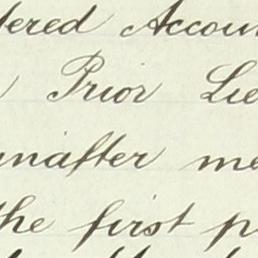 dered Accoun
Prior Lie
inafter me
the first p